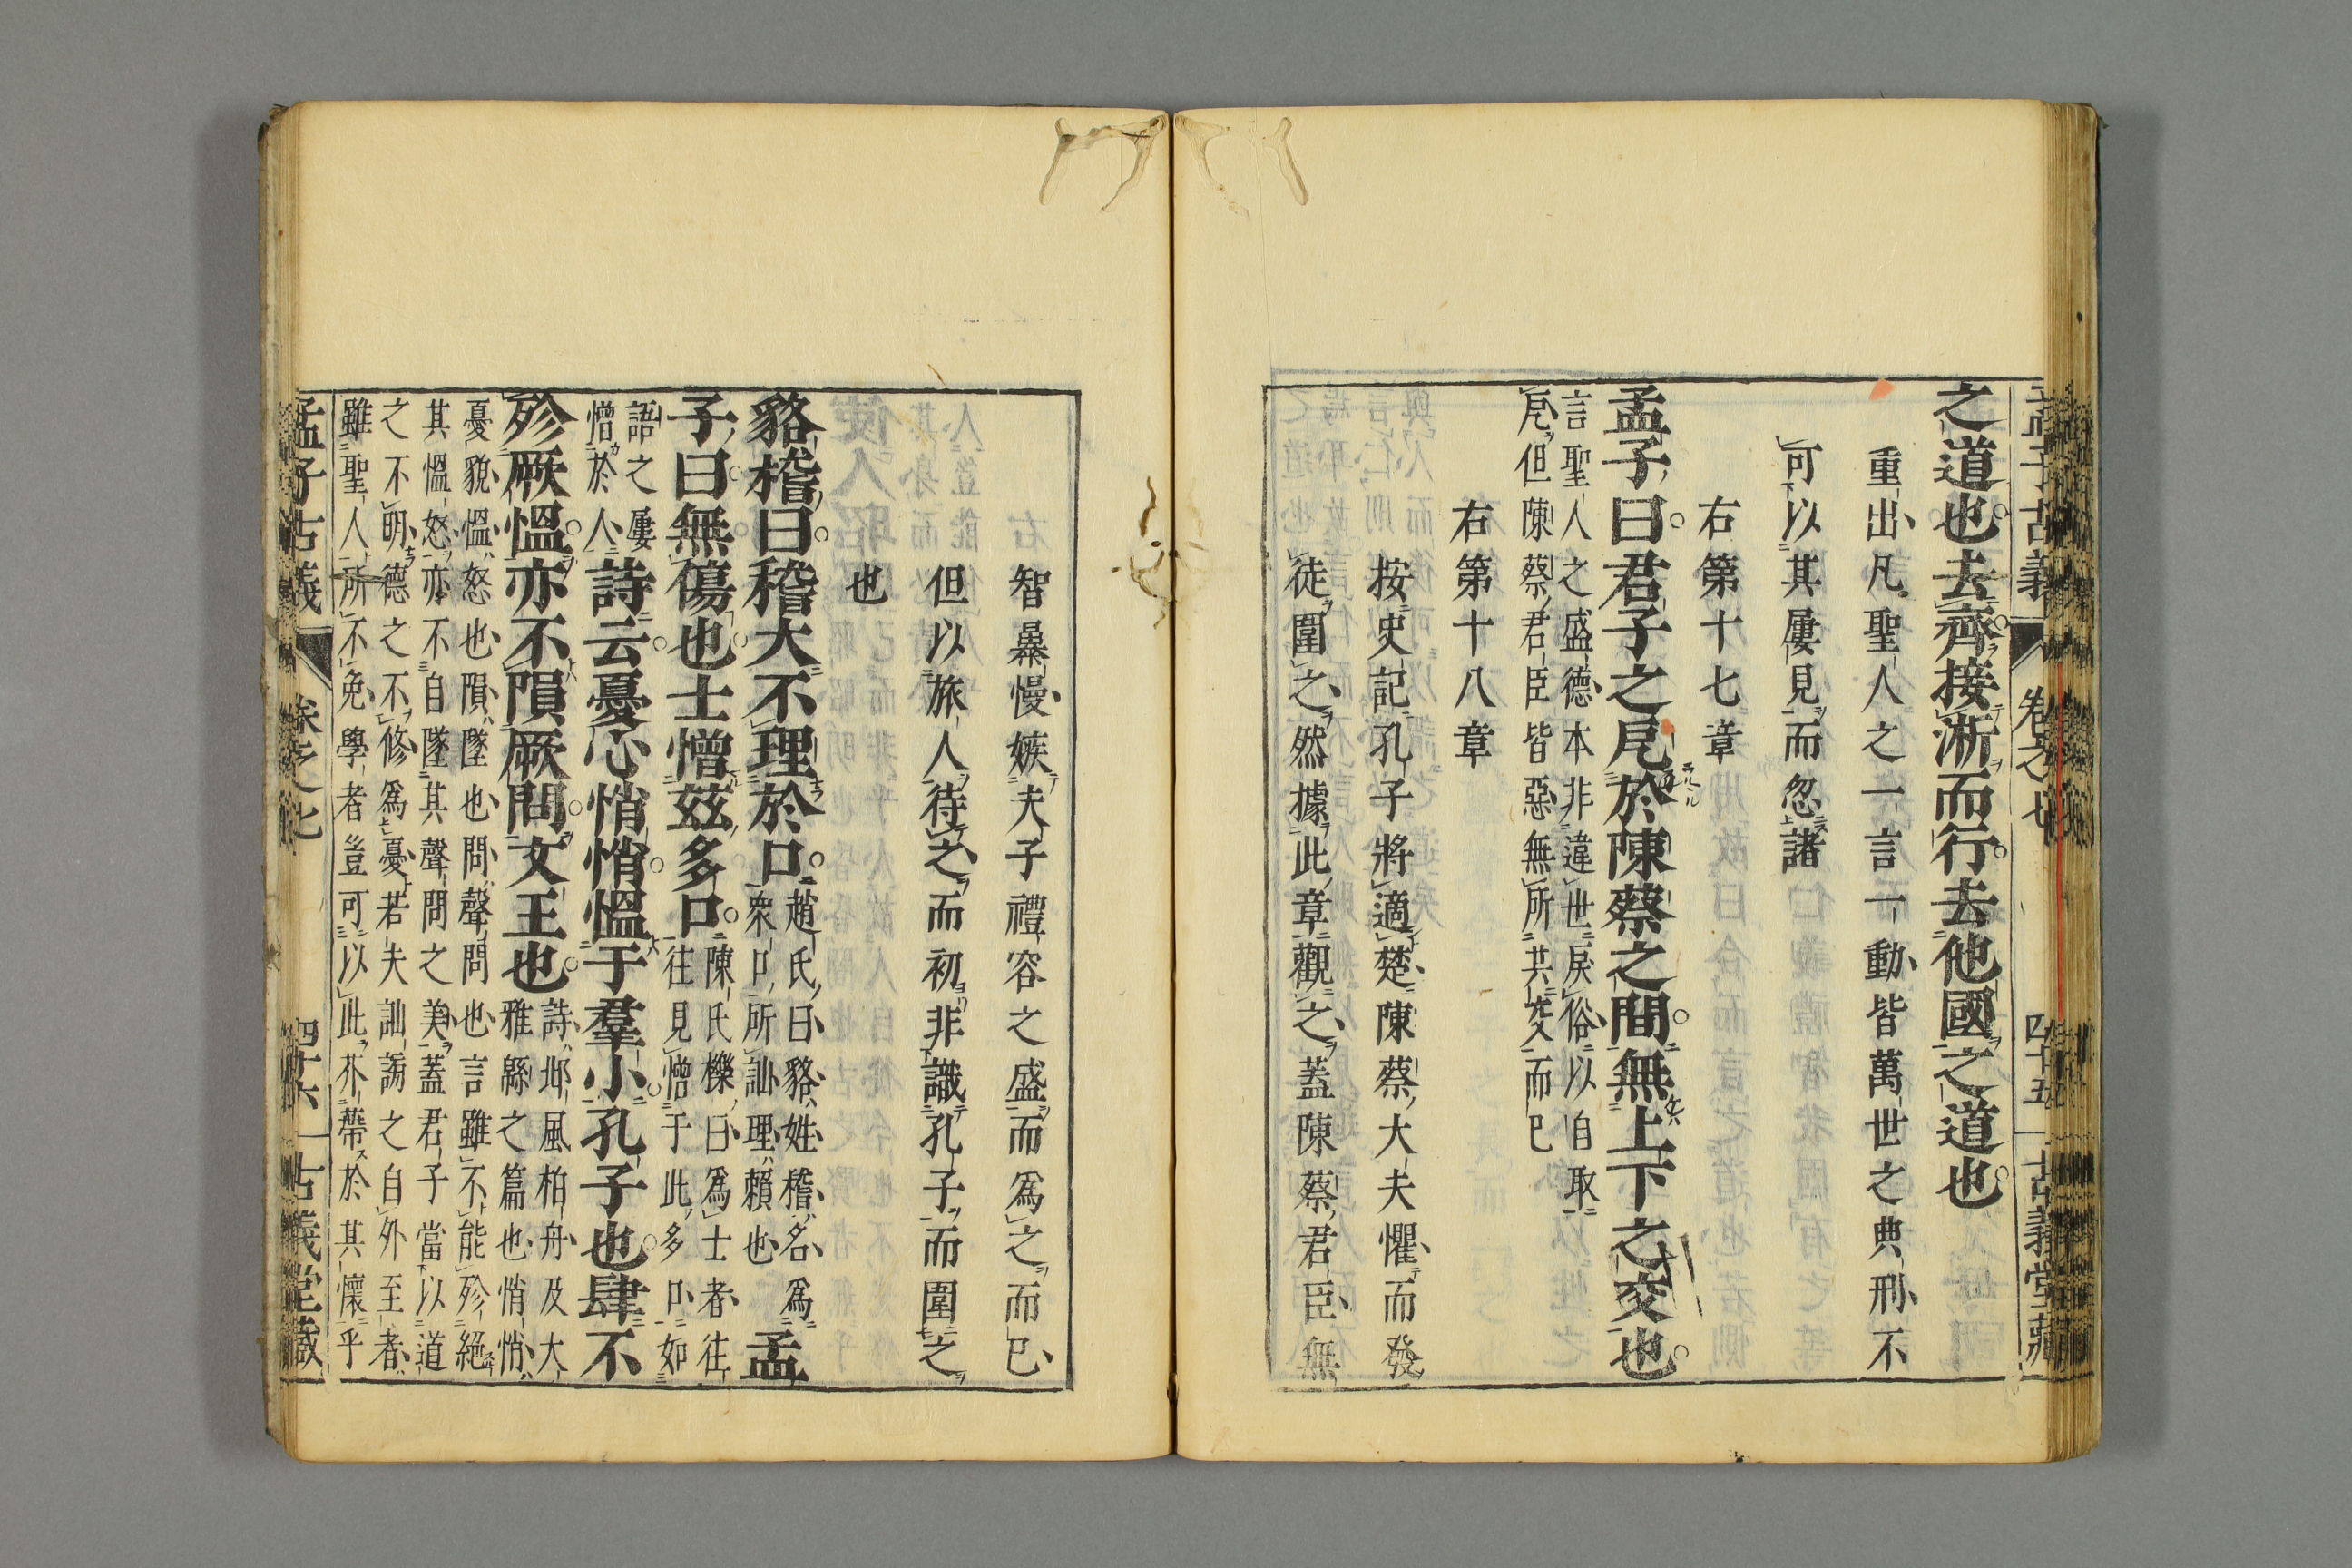 之道也去齊接淅而行去他國之道也
重出凡聖人之一言一動皆萬世之典刑不
可以其屢見而忽諸
右第十七章
孟子曰君子之戹於陳蔡之間無上下之交也
言聖人之盛德本非違世戾俗以自取
戹但陳蔡君臣皆惡無所共交而已
右第十八章
按史記孔子將適楚陳蔡大夫懼而發
徒圍之然據此章觀之蓋陳蔡君臣無
智暴慢嫉夫子禮容之盛而爲之而已
但以旅人待之而初非識孔子而圍之
也
貉稽曰稽大不理於口
趙氏曰貉姓稽名爲
衆口所訕理賴也
孟
子曰無傷也士憎茲多口
陳氏櫟曰爲士者往
往見憎于此多口如
語之屢
憎於人
詩云憂心悄悄慍于羣小孔子也肆不
殄厥慍亦不隕厥問文王也
詩邶風柏舟及大
雅緜之篇也悄悄
憂貌慍怒也隕墜也問聲問也言雖不能殄絕
其慍怒亦不自墜其聲問之美蓋君子當以道
之不明德之不修爲憂若夫訕謗之自外至者
雖聖人所不免學者豈可以此芥蔕於其懷乎
孟子古義 卷之七 四十六 古義堂藏